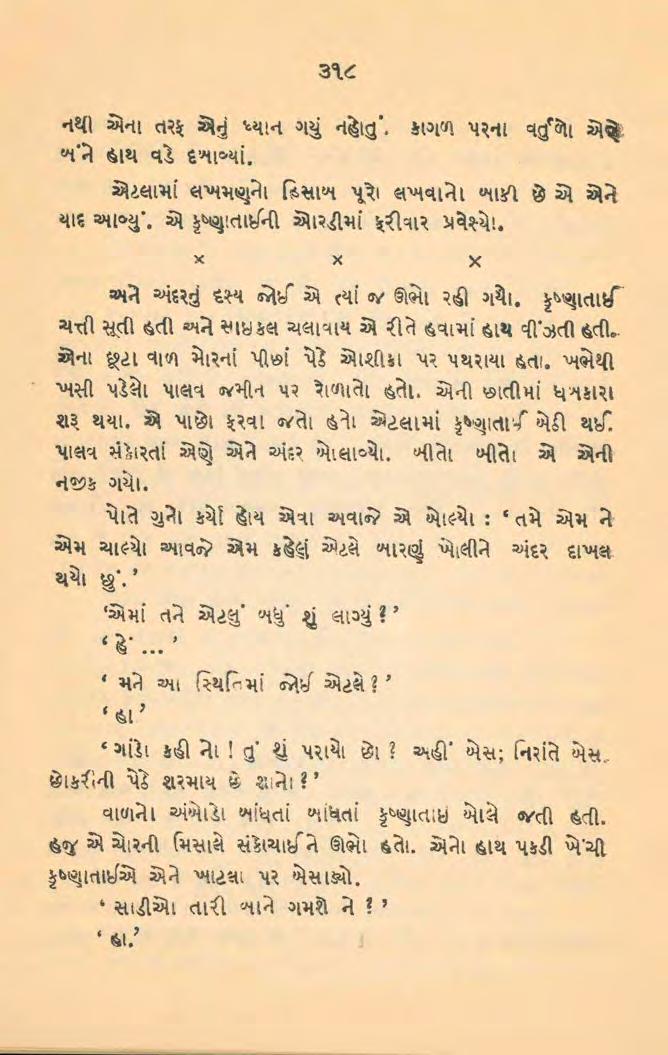 ૩૧૮
નથી એના તરફ એનું ધ્યાન ગયું નહોતું. કાગળ પરના વર્તુળો એણે
બંને હાથ વડે દબાવ્યાં.
એટલામાં લખમણનો હિસાબ પૂરો લખવાનો બાકી છે એ એને
યાદ આવ્યું. એ કૃષ્ણાતાઈની ઓરડીમાં ફરીવાર પ્રવેશ્યો.
× × ×
અને અંદરનું દશ્ય જોઈ એ ત્યાં જ ઊભો રહી ગયો. કૃષ્ણાતાઈ
ચત્તી સૂતી હતી અને સાઇકલ ચલાવાય એ રીતે હવામાં હાથ વીંઝતી હતી.
એના છૂટા વાળ મોરનાં પીછાં પેઠે ઓશીકા પર પથરાયા હતા. ખભેથી
ખસી પડેલો પાલવ જમીન પર રોળાતો હતો. એની છાતીમાં ધબકારા
શરૂ થયા. એ પાછો ફરવા જતો હતો એટલામાં કૃષ્ણાતાઈ બેઠી થઈ.
પાલવ સંકોરતાં એણે એને અંદર બોલાવ્યો. બીતો બીતો એ એની
નજીક ગયો.
પોતે ગુનો કર્યો હોય એવા અવાજે એ બોલ્યો : ‘તમે એમ ને
એમ ચાલ્યો આવજે એમ કહેલું એટલે બારણું ખોલીને અંદર દાખલ
થયો છું.’
‘એમાં તને એટલું બધું શું લાગ્યું ?’
‘હેં ...’
‘ મને આ સ્થિતિમાં જોઈ એટલે ?’
‘હા’
‘ગાંડો કહી નો ! તું શું પરાયો છો ? અહીં બેસ; નિરાંતે બેસ.
છોકરીની પેઠે શરમાય છે શાનો ?’
વાળનો અંબોડો બાંધતાં બાંધતાં કૃષ્ણાતાઇ બોલે જતી હતી.
હજુ એ ચોરની મિસાલે સંકોચાઈને ઊભો હતો. એનો હાથ પકડી ખેંચી
કૃષ્ણાતાઈએ એને ખાટલા પર બેસાડ્યો.
‘ સાડીઓ તારી બાને ગમશે ને ?’
‘ હા.’